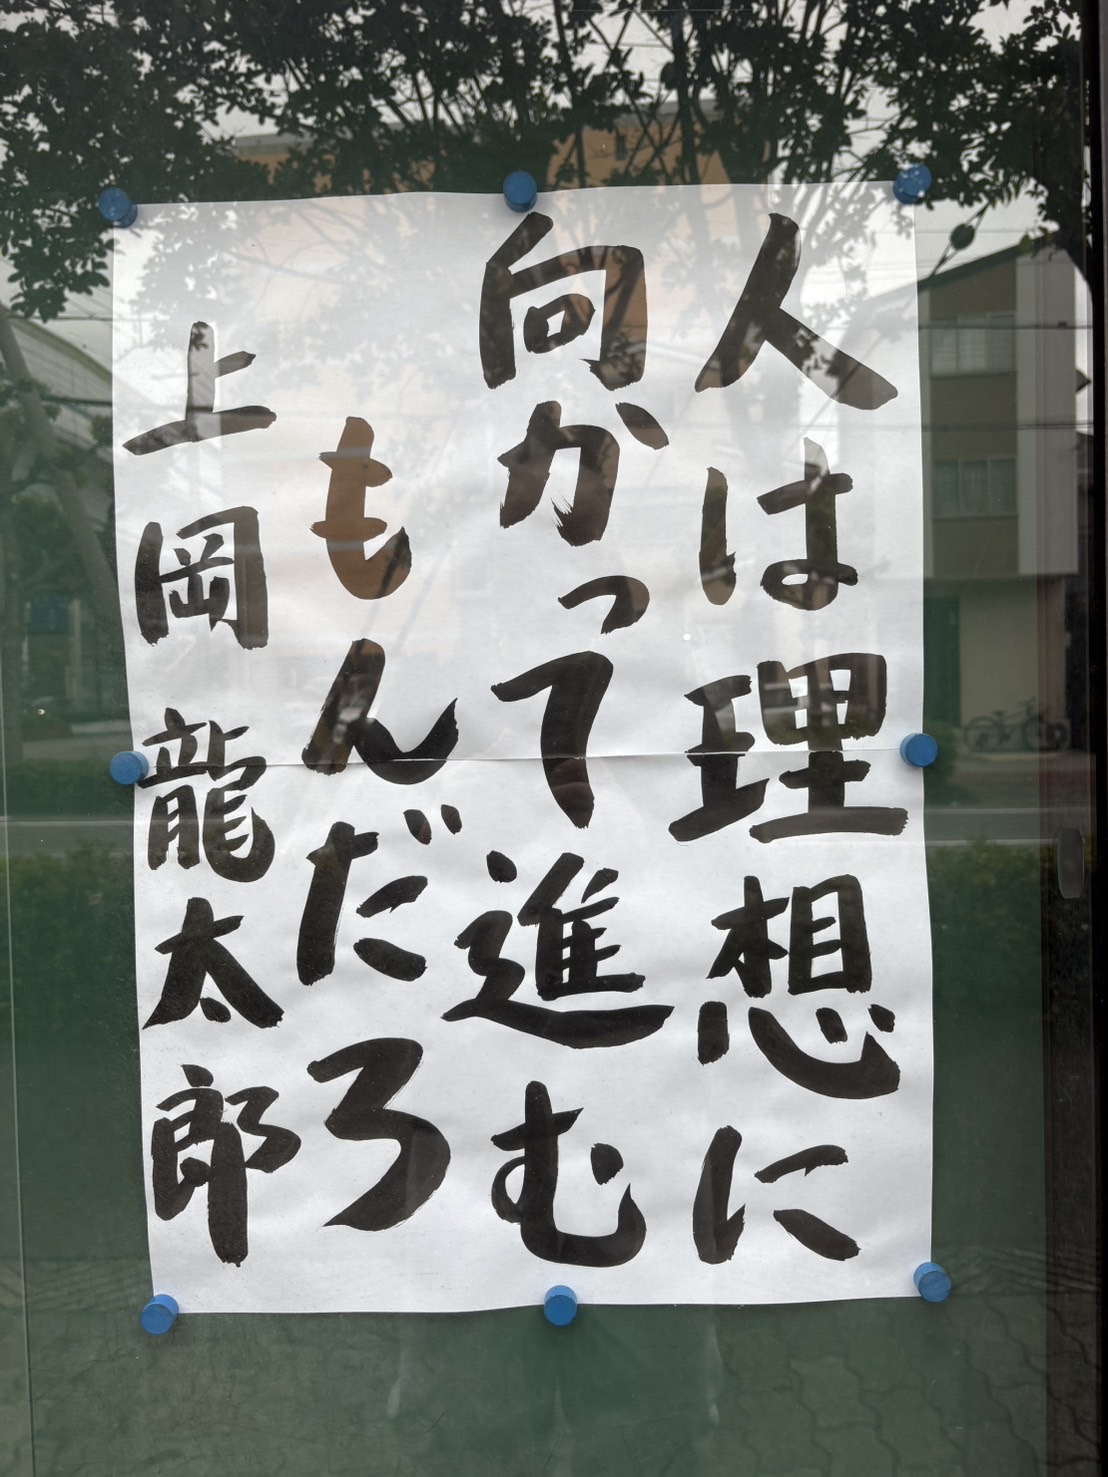 人は理想に
向かって進む
もんだろ
上岡龍太郎